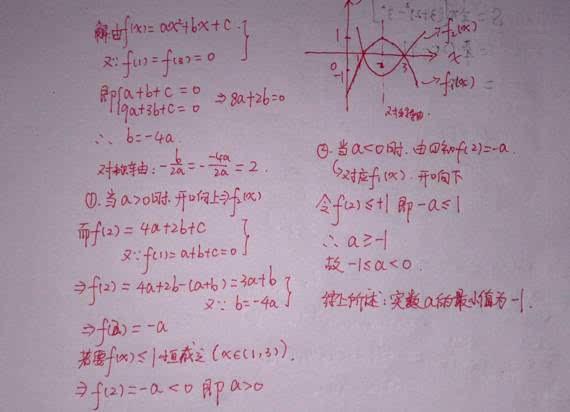 解:由f(x)=ax²+bx+c.
又∵f(1)=f(3)=0
即{a+b+c=0
9a+3b+c=0 ⇒8a+2b=0
∴ b=-4a.
对称轴:-b/2a=-(-4a)/2a=2.
①.当a>0时.开口向上⇒f₂(x)
而f(2)=4a+2b+c
又∵f(1)=a+b+c=0
⇒f(2)=4a+2b-(a+b)=3a+b
又∵b=-4a
⇒f(2)=-a
若要f(x)≤1恒成立(x∈(1,3)).
⇒f(2)=-a<0 即a>0
f₂(x)
1
x
0
2
3
-1
f₁(x)
对称轴.
②.当a<0时.由①知f(2)=-a.
↳对应f₁(x).开口向下
令f(2)≤+1 即-a≤1
∴a≥-1
故-1≤a<0.
综上所述:实数a的最小值为-1.